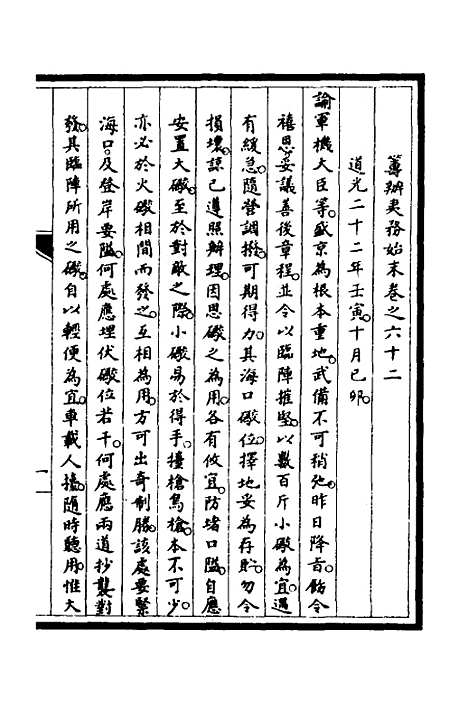 籌辦夷務始末卷之六十二
道光二十二年壬寅。十月己卯。
諭軍機大臣等。盛京為根本重地。武備不可稍弛。昨日降旨。飭令
禧恩妥議善後章程。並令以臨陣摧堅。以數百斤小礮為宜。遇
有緩急。隨營調撥。可期得力。其海口礮位。擇地妥為存貯。勿令
損壞。諒已遵照辦理。因思礮之為用。各有攸宜。防堵口隘。自應
安置大礮。至於對敵之際。小礮易於得手。擡槍鳥槍。本不可少。
亦必於火礮相間而發之。互相為用。方可出奇制勝。該處要緊
海口。及登岸要隘。何處應埋伏礮位若干。何處應兩道抄襲對
發。其臨陣所用之礮。自以輕便為宜。車載人擡。隨時聽用。惟大
一